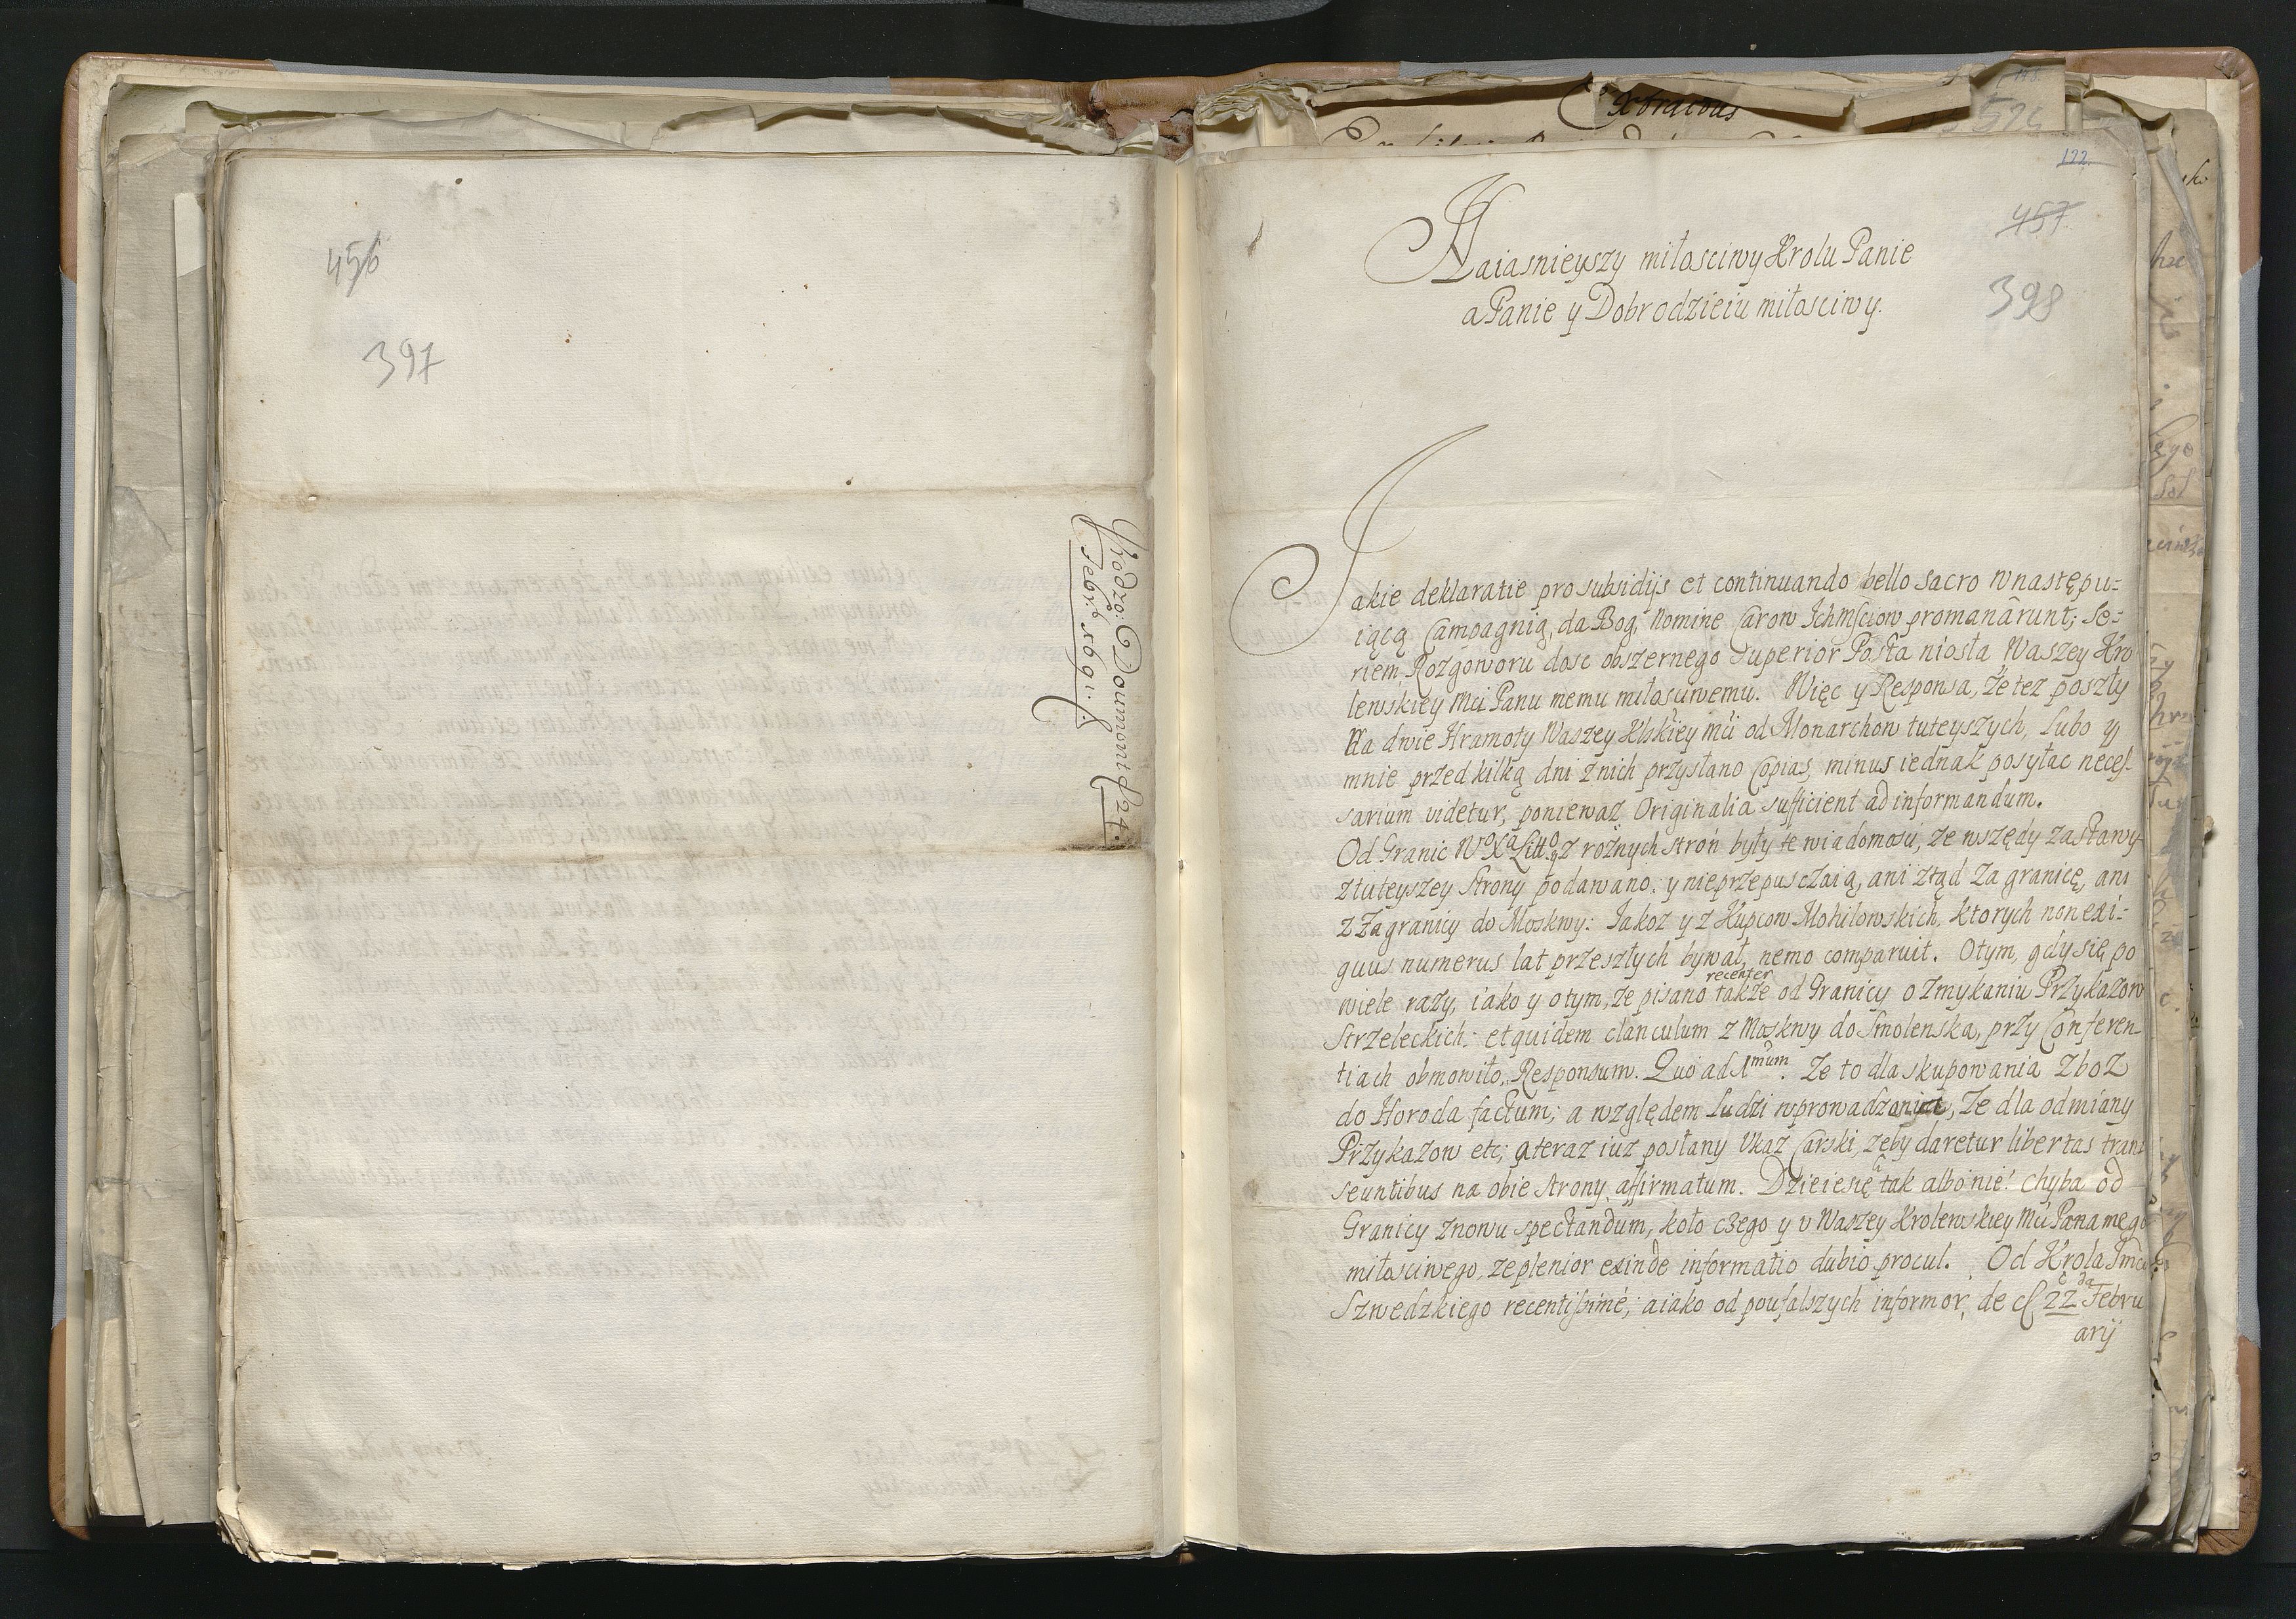 456
397
Dowmont d 24.
Febr. 1691.
122.
457
398
Naiasnieyszy miłosciwy Krolu Panie
a Panie y Dobrodzieiu miłosciwy.
Jakie deklaratie pro subsidijs et continuando bello sacro wnastępu=
iącą Campagnią, da Bog, Nomine Carow Ichmściow promanârunt; Se=
riem Rozgoworu dosc obszernego superior Posta niosła Waszey Kro
lewskiey Mći Panu memu miłosciwemu. Więc y Responsa, że tez poszły
Na dwie Hramoty Waszey Klskiey Mći od Monarchow tuteyszych, lubo y
mnie przed kilką dni z nich przysłano Copias, minus iednak posyłac neces=
sarium videtur, poniewaz Originalia sufficient ad informandum.
Od Granic Wo Xa Litto z rożnych stron były te wiadomosci, ze wszędy zastawy
z tuteyszey strony podawano: y nieprzepusczaią, ani ztąd za granicę, ani
z Zagranicy do Moskwy: Jakoz y z Kupcow Mohilowskich, ktorych non exi=
guus numerus lat przeszłych bywał, nemo comparuit. Otym, gdy się po
wiele razy, iako y otym, ze pisano recenter także od Granicy o zmykaniu Przykazow
Strzeleckich: et quidem clanculum z Moskwy do Smolenska, przy Conferen
tiach obmowiło, Responsum. Quo ad 1mum. Ze to dla skupowania zboz
do Horoda factum; a względem ludzi wprowadzonia, Ze dla odmiany
Przykazow etc; a teraz iuz posłany Ukaz Carski, zeby daretur libertas trans
seuntibus na obie strony, affirmatum. Dzieie się tak albo nie! chyba od
Granicy znowu spectandum, koło czego y v Waszey Krolewskiey Mći Pana mego
miłosciwego, ze plenior exinde informatio dubio procul. Od Krola Jmći
Szwedzkiego recentissimé; a iako od poufalszych informor, de 22 Febru
arij